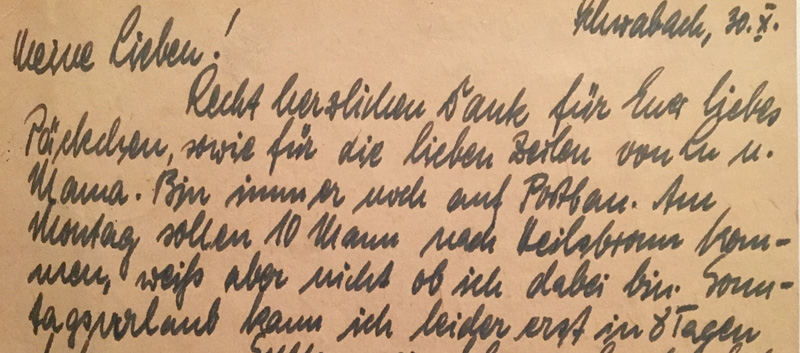 Schwabach, 30. X.
Meine Lieben!
Recht herzlichen Dank für Euer liebes
Päckchen, sowie für die lieben Zeilen von u.
Mama. Bin immer noch auf Postbau. Am
Montag sollen 10 Mann nach Heilsbronn kom-
men, weiß aber nicht ob ich dabei bin. Sonn-
tagsurlaub kann ich leider erst in 8 Tagen